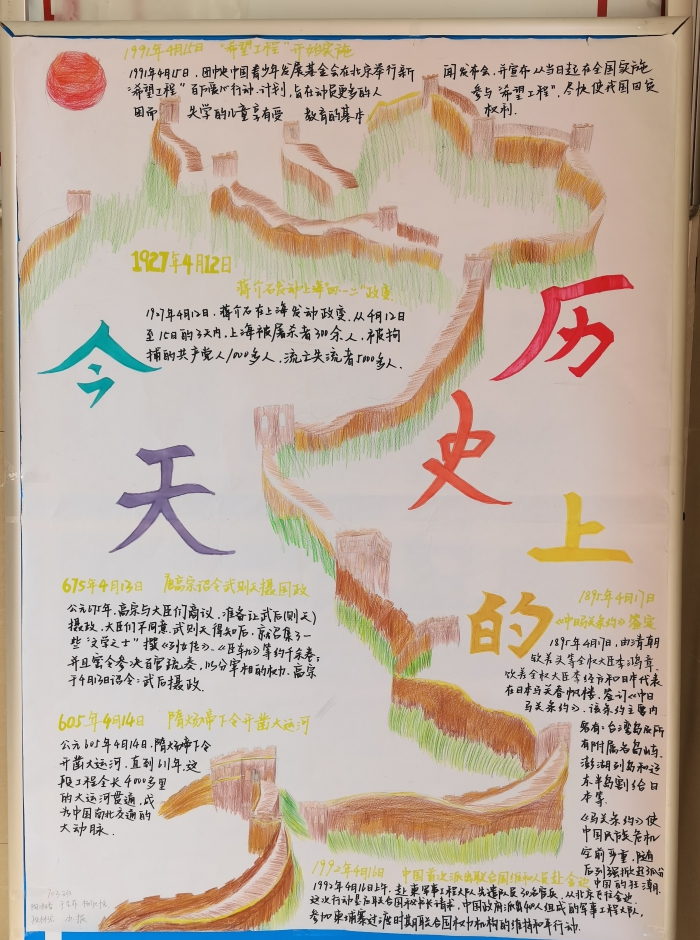 1991年4月15日 "希望工程"开始实施
1991年4月15日,团中央中国青少年发展基金会在北京举行新闻发布会,并宣布从当日起在全国实施
"希望工程"百万爱心行动计划,旨在动员更多的人参与"希望工程",尽快使我国因贫
困而失学的儿童享有受教育的基本权利.
1927年4月12日
蒋介石发动上海"四一二"政变
1927年4月12日,蒋介石在上海发动政变.从4月12日
至15日的3天内,上海被屠杀者300余人,被拘
捕的共产党人1000多人,流亡失流者5000多人.
今天
历史上的
675年4月13日 唐高宗诏令武则天摄国政
公元675年,高宗与大臣们商议,准备让武后(则天)
摄政,大臣们不同意.武则天得知后,就召集了一
些"文学之士"撰《列女传》、《臣轨》等约千余卷;
并且密令参决百官疏奏,以分宰相的权力.高宗
于4月13日诏令:武后摄政.
605年4月14日 隋炀帝下令开凿大运河
公元605年4月14日,隋炀帝下令
开凿大运河,直到611年,这
段工程全长4000多里
的大运河贯通,成
为中国南北交通的
大动脉.
1895年4月17日
《中日马关条约》签定
1895年4月17日,由清朝
钦差头等全权大臣李鸿章,
钦差全权大臣李经方和日本代表
在日本马关春帆楼,签订《中日
马关条约》.该条约主要内
容有:台湾岛及所
有附属各岛屿,
澎湖列岛和辽
东半岛割给日
本等.
《马关条约》使
中国民族危机
空前严重,随
后列强掀起瓜分
中国的狂潮.
1992年4月16日 中国首次派出联合国维和人员赴金边
1992年4月16日上午,赴柬军事工程大队先遣队员30名官兵,从北京飞往金边.
这次行动是应联合国秘书长请求,中国政府派出400人组成的军事工程大队,
参加柬埔寨过渡时期联合国权力机构的维持和平行动.